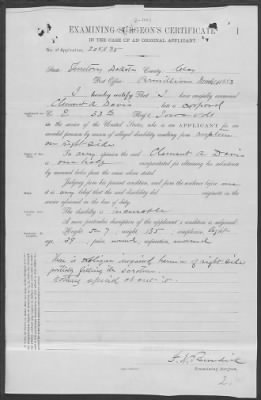 EXAMINING SURGEON'S CERTIFICATE
IN THE CASE OF AN ORIGINAL APPLICANT.
No. of Application,
State: Territory Dakota County: Clay
Post Office: Vermillion
I hereby certify That I have examined
Clement A. Davis, late a
Co. E, 33d Reg't Iowa Vols
in the service of the United States, who is an APPLICANT for an
invalid pension by reason of alleged disability resulting from rupture
on right side
In my opinion the said Clement A. Davis
is one half incapacitated for obtaining his subsistence
by manual labor from the cause above stated.
Judging from his present condition, and from the evidence before me
it is my belief that the said disability did originate in the
service aforesaid in the line of duty.
The disability is
A more particular description of the applicant's condition is subjoined:
Height, 5-7; weight, 135; complexion, light;
age, 39; pulse, normal; respiration, normal
There is oblique inguinal hernia of right side
partially filling the scrotum.
Examining Surgeon.